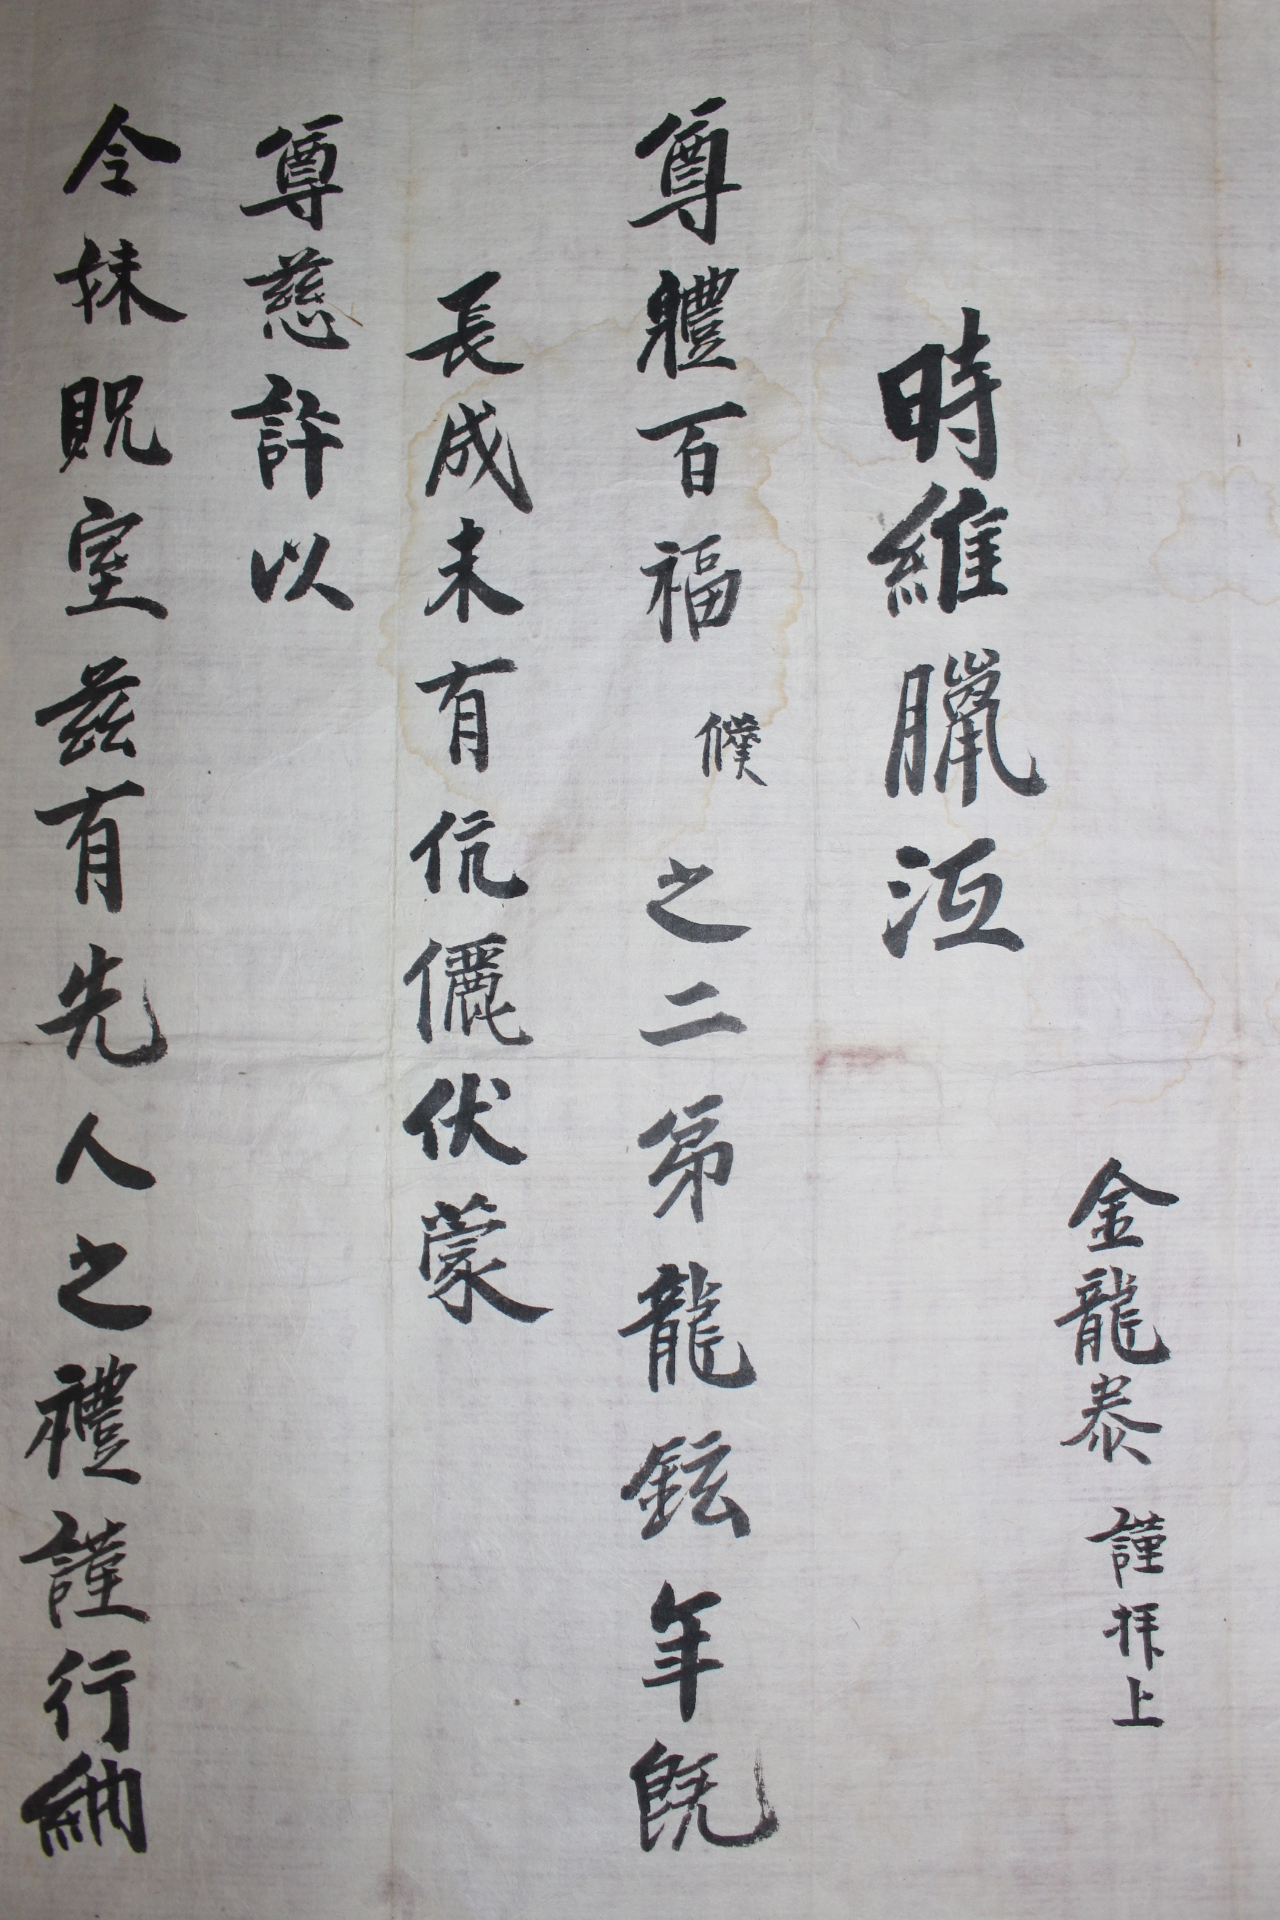 金龍泰 謹拜上
時維臘沍
尊軆百福 僕之二弟龍鉉年旣
長成未有伉儷伏蒙
尊慈許以
令妹貺室玆有先人之禮謹行納